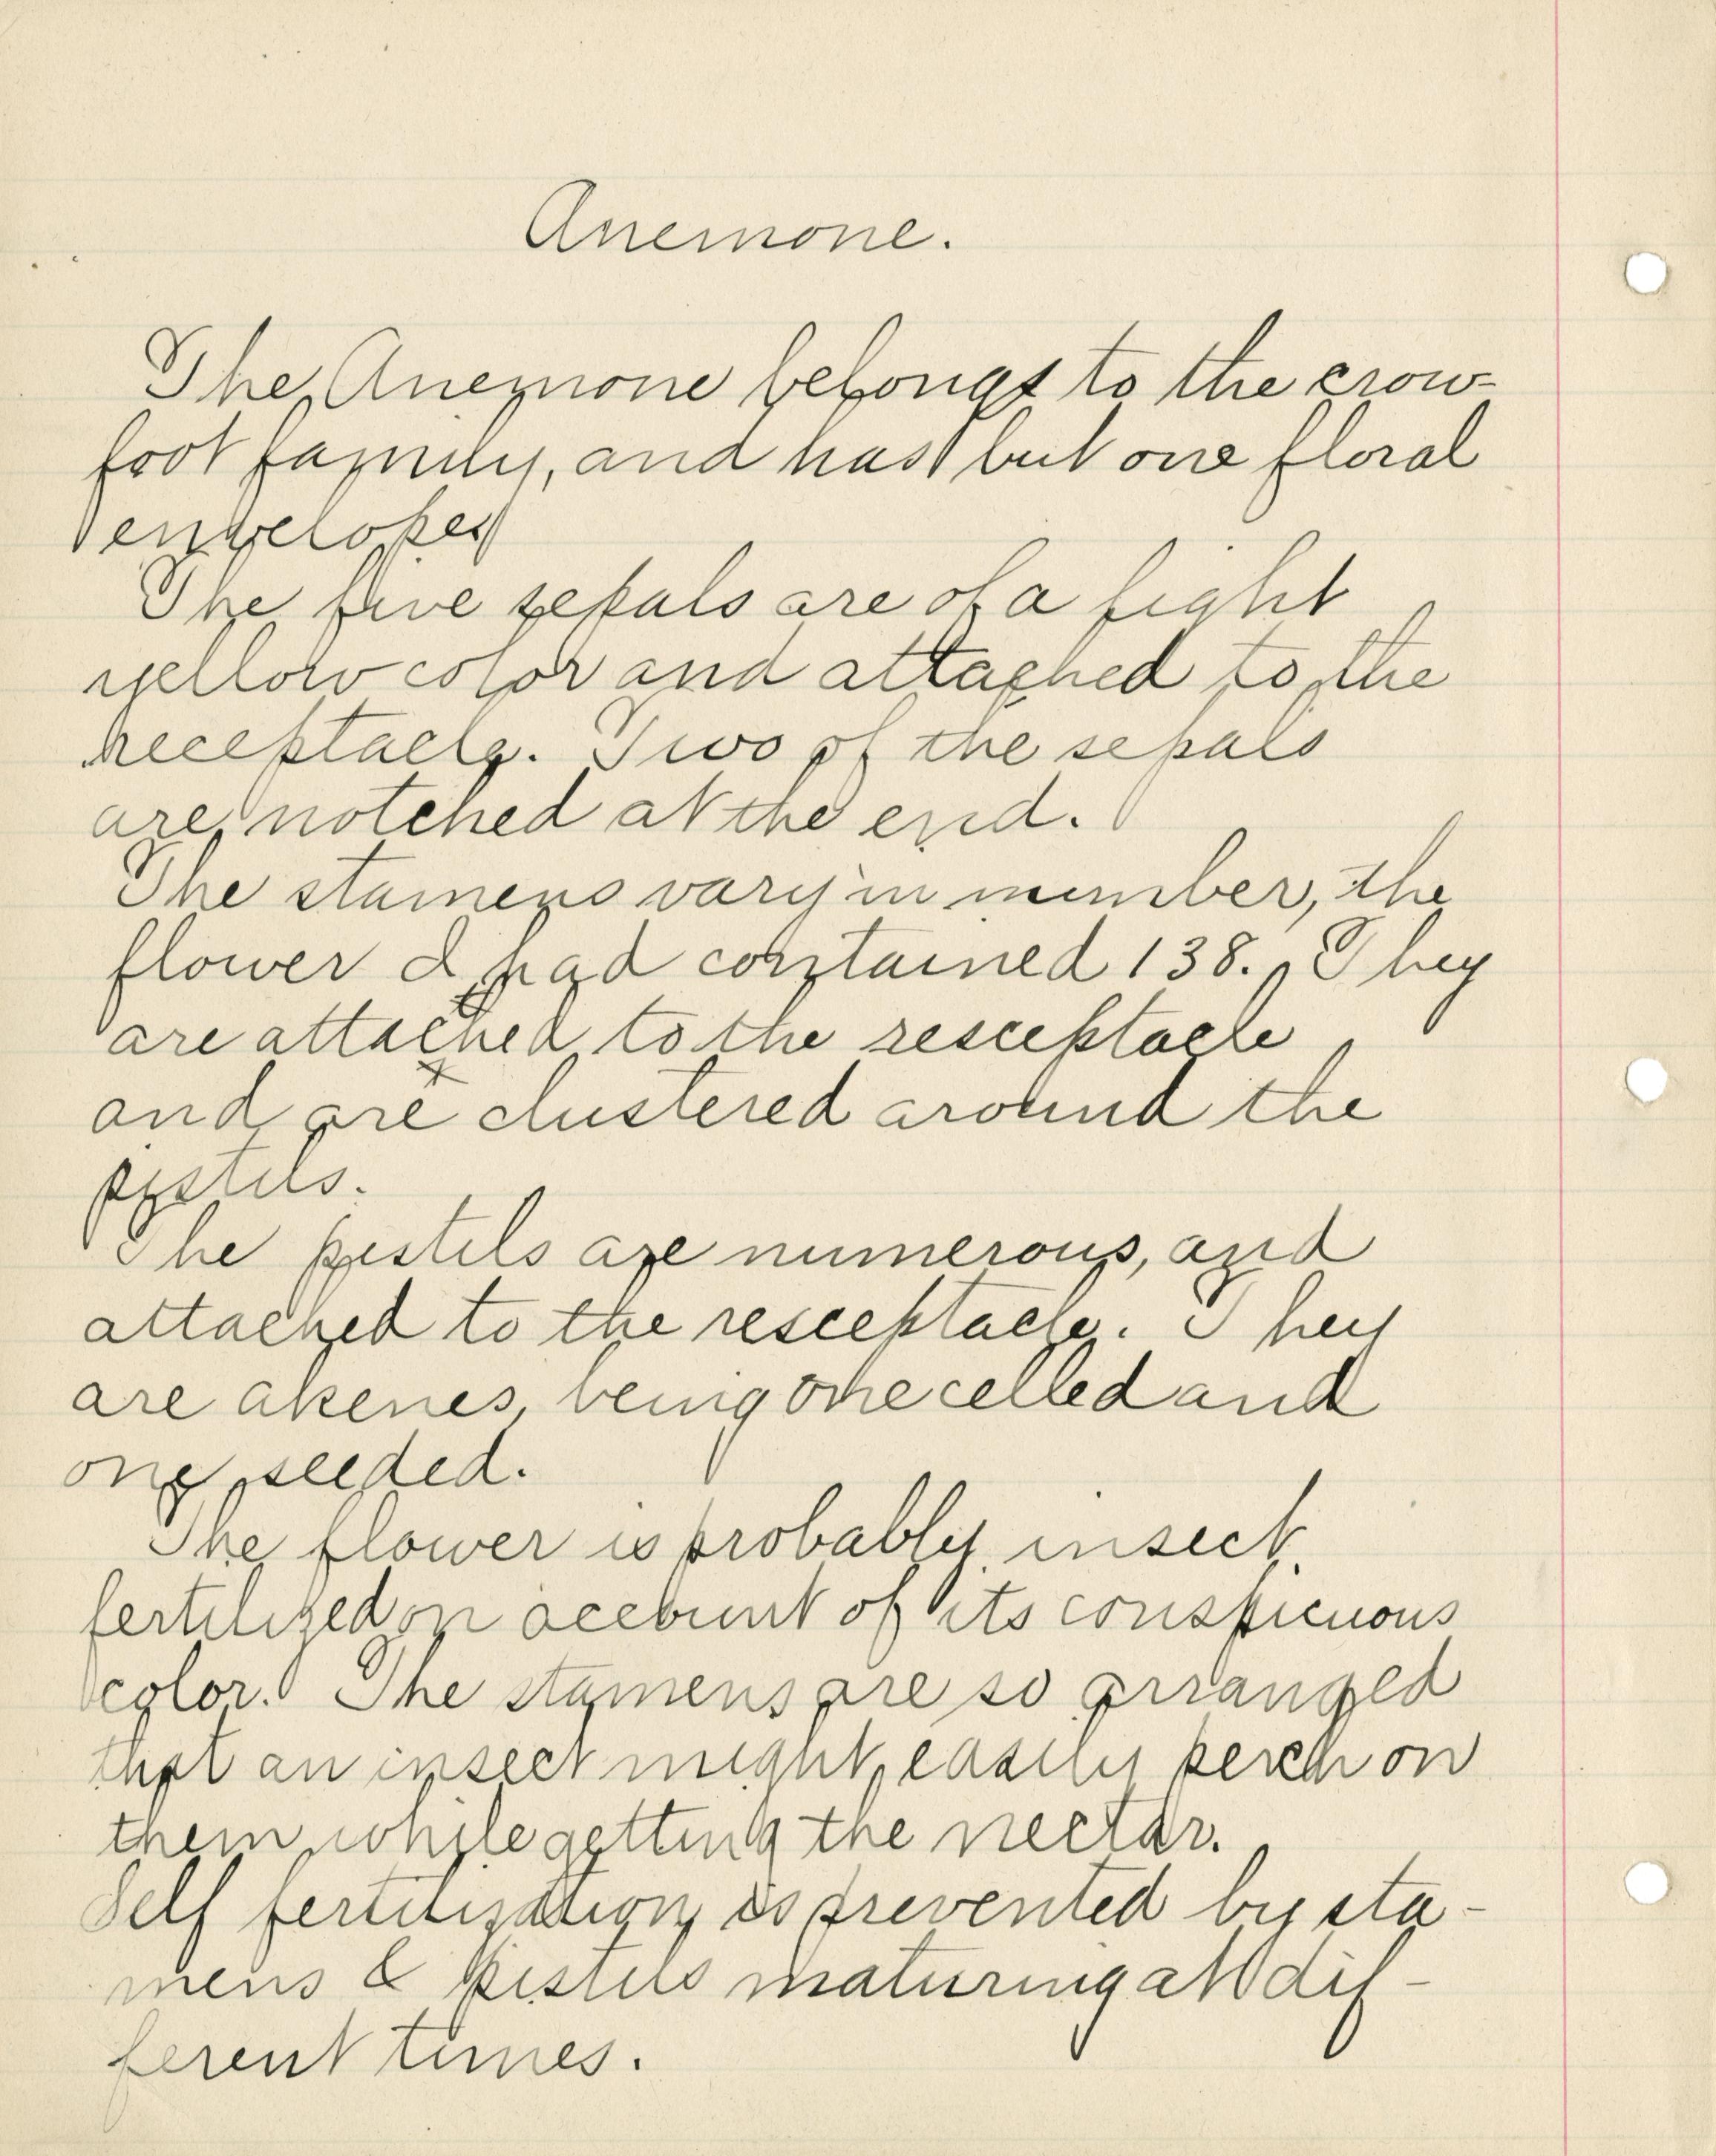 Anemone.
The Anemone belongs to the crow-
foot family, and has but one floral
envelope.
The five sepals are of a light
yellow color and attached to the
receptacle. Two of the sepals
are notched at the end.
The stamens vary in number, the
flower I had contained 138. They
are attached to the resceptacle
and are clustered around the
pistils.
The pistils are numerous, and
attached to the resceptacle. They
are akenes, being one celled and
one seeded.
The flower is probably insect
fertilized on account of its conspicuous
color. The stamens are so arranged
that an insect might easily perch on
them while getting the nectar.
Self fertilization is prevented by sta-
mens & pistils maturing at dif-
ferent times.